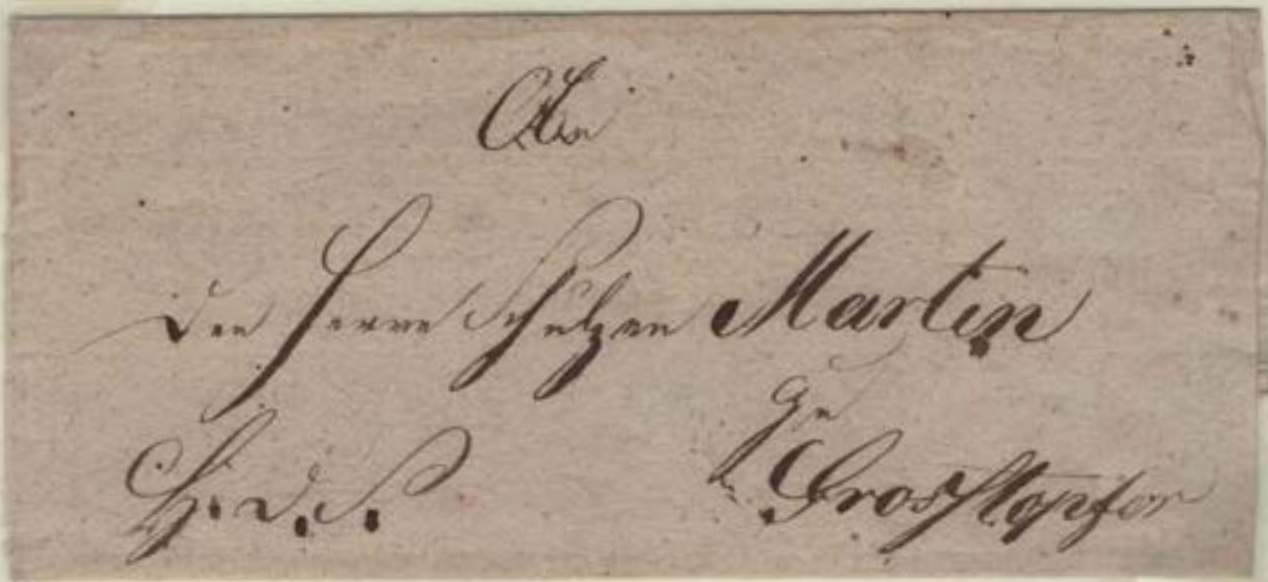 An
den Herrn Schulzen Martin
zu
H. d. S. Grosstöpfer